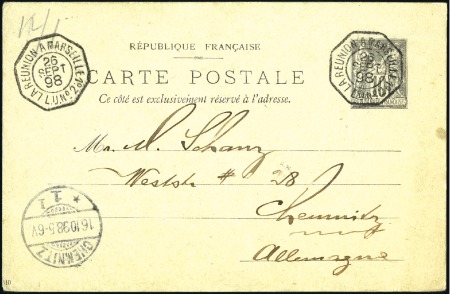 12/1
RÉPUBLIQUE FRANÇAISE
CARTE POSTALE
Ce côté est exclusivement réservé à l'adresse.
LA REUNION A MARSEILLE
26
SEPT
98
LA REUNION A MARSEILLE
26
SEPT
98
Mr. M. Schanz
Weststr # 28
Chemnitz
Allemagne
CHEMNITZ
* 1 I
16.10.98.5-6V